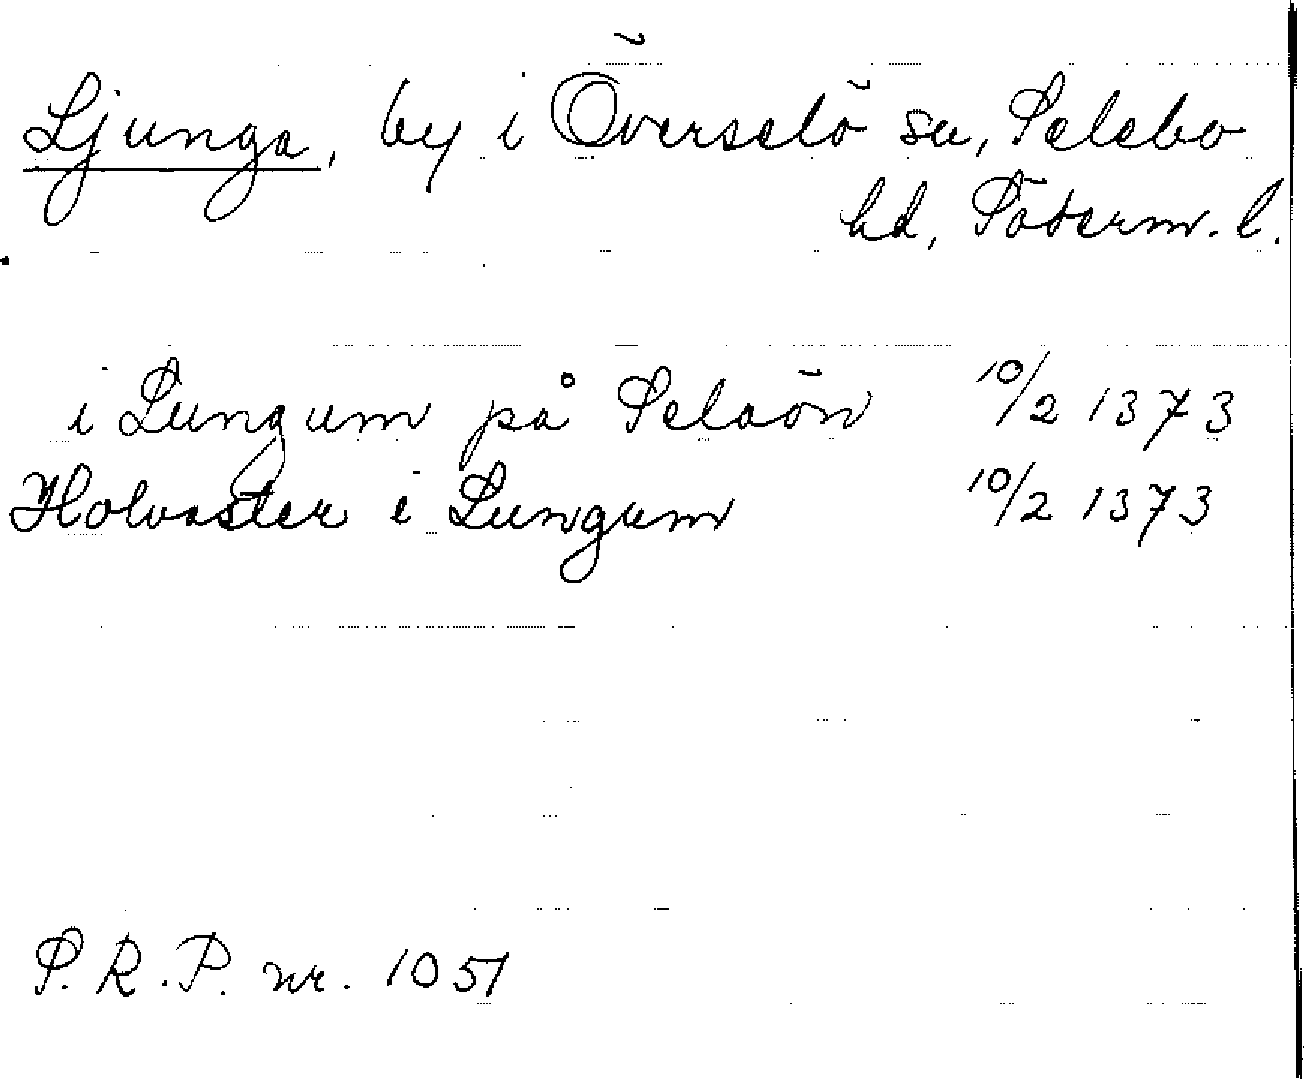 Ljunga, by i Överselö sn, Selebo
hd, Söderm. l.
i Lungum på Selaön 10/2 1373
Holvaster i Lungum 10/2 1373
S.R.P. nr. 1051